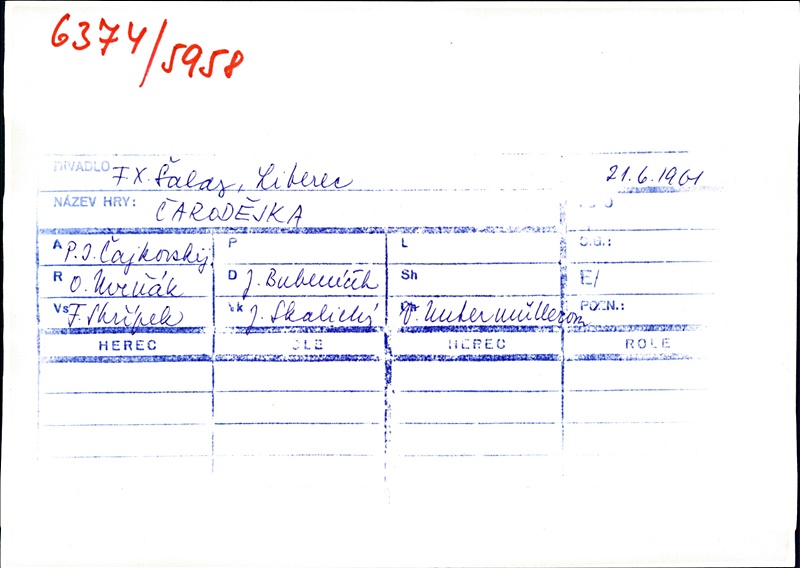 6374/5958
DIVADLO F.X. Šalda, Liberec 21.6.1961
NÁZEV HRY: ČARODĚJKA
A P.I. Čajkovský P L Č.G.:
R O. D J. Bubeníček Sh E/
Vs F. Skřípek J. Skalický V. Untermüllerová POZN.:
HEREC ROLE HEREC ROLE